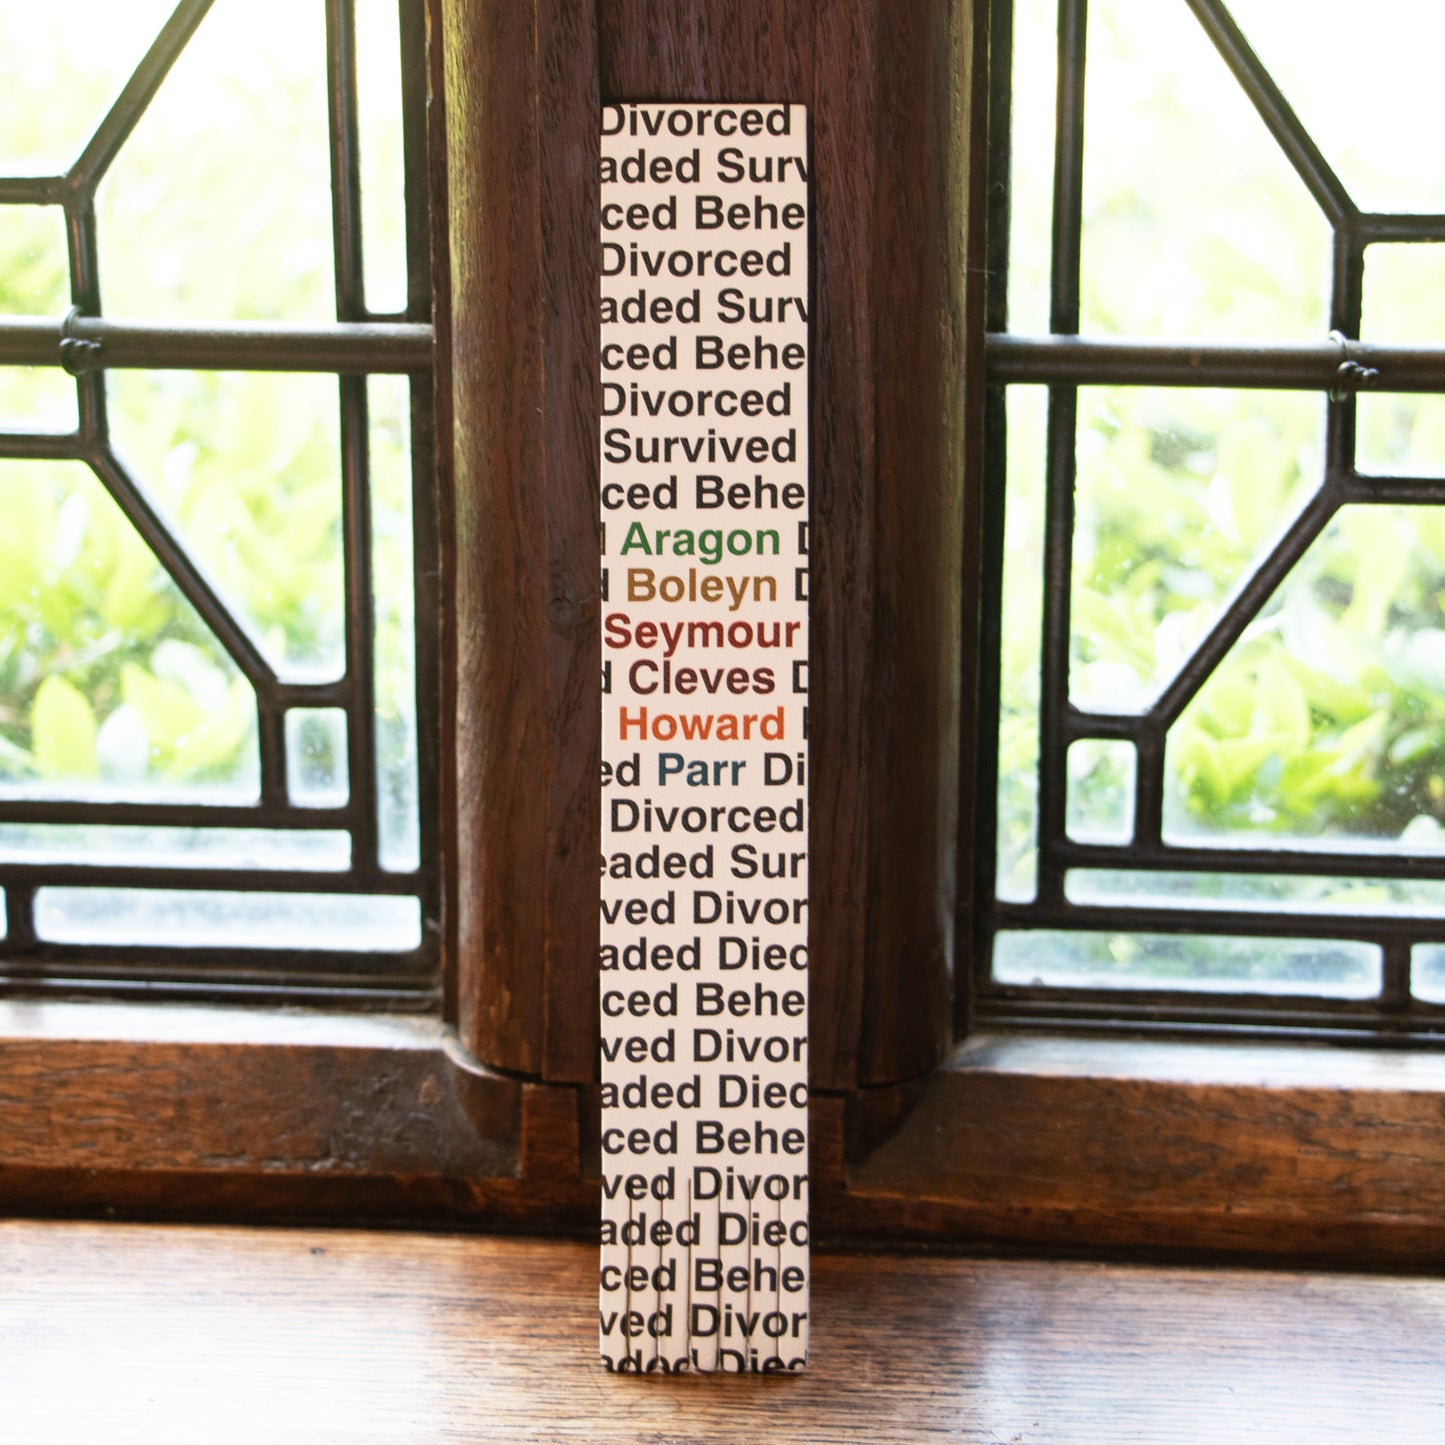 Divorced
aded Surv
ced Behe
Divorced
aded Surv
ced Behe
Divorced
Survived
ced Behe
d Aragon D
d Boleyn D
Seymour
d Cleves D
Howard
ed Parr Di
Divorced
eaded Sur
ved Divor
aded Died
ced Behe
ved Divor
aded Died
ced Behe
ved Divor
aded Died
ced Behe
ved Divor
aded Died